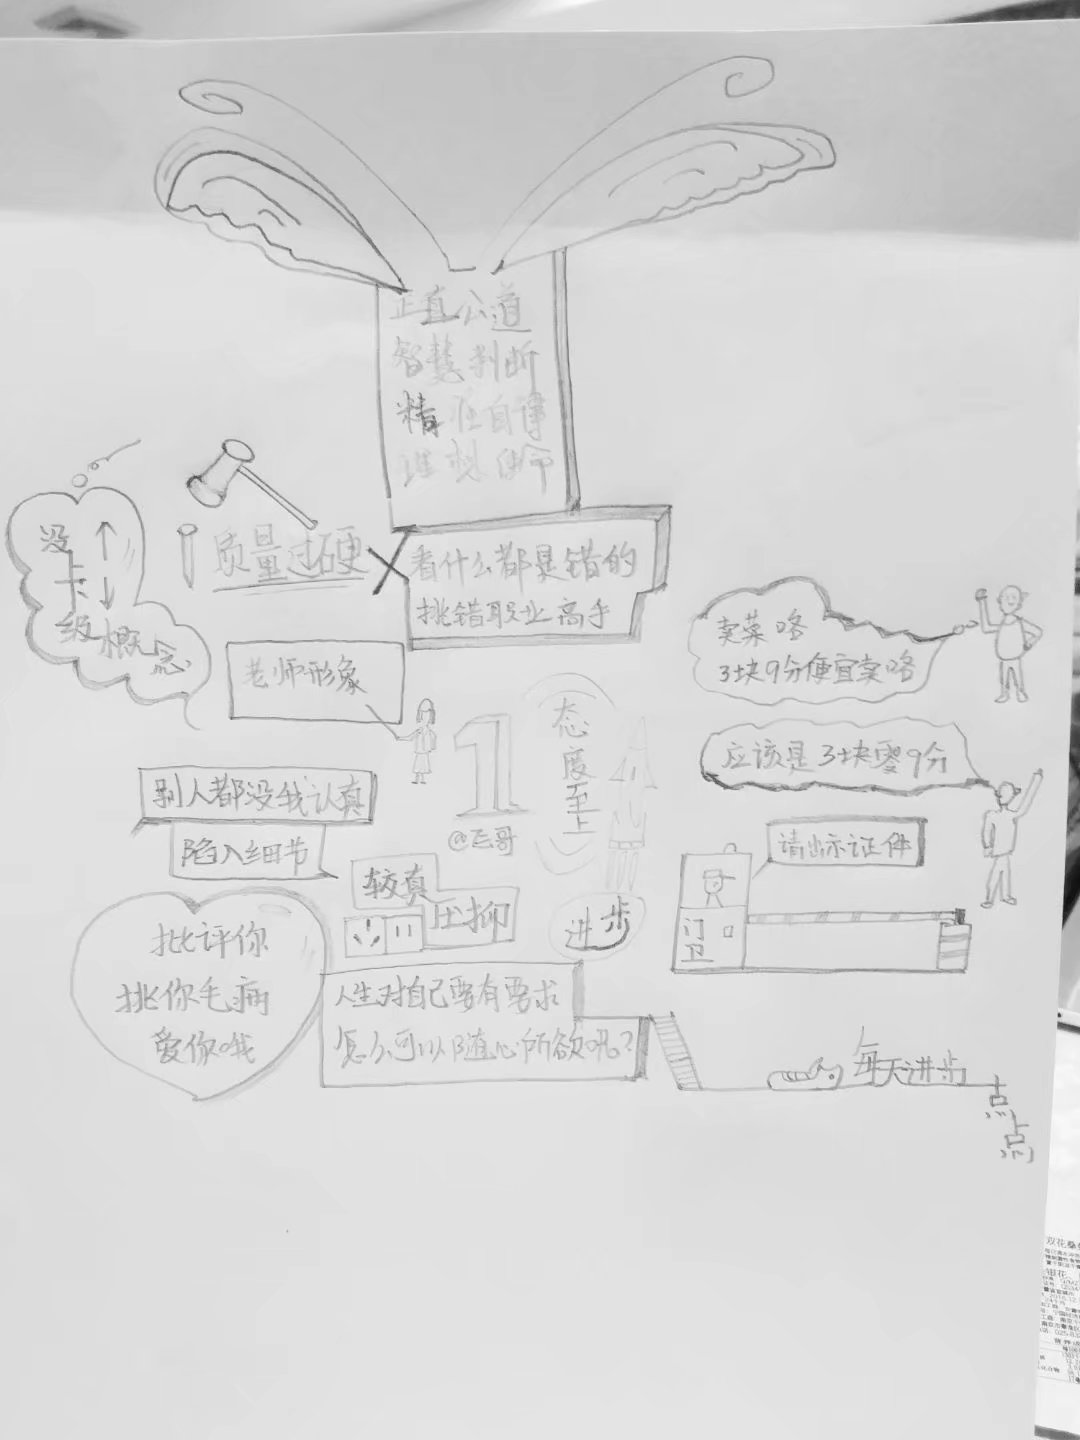 正直公道
智慧判断
精
理想
质量过硬
没上下
级概念
看什么都是错的
挑错职业高手
老师形象
卖菜咯
3块9分便宜卖咯
态度至上
应该是3块零9分
1
@飞哥
别人都没我认真
陷入细节
请出示证件
较真
压抑
门卫
进步
批评你
挑你毛病
爱你哦
人生对自己要有要求
怎么可以随心所欲呢？
每天进步
一点点
双花桑